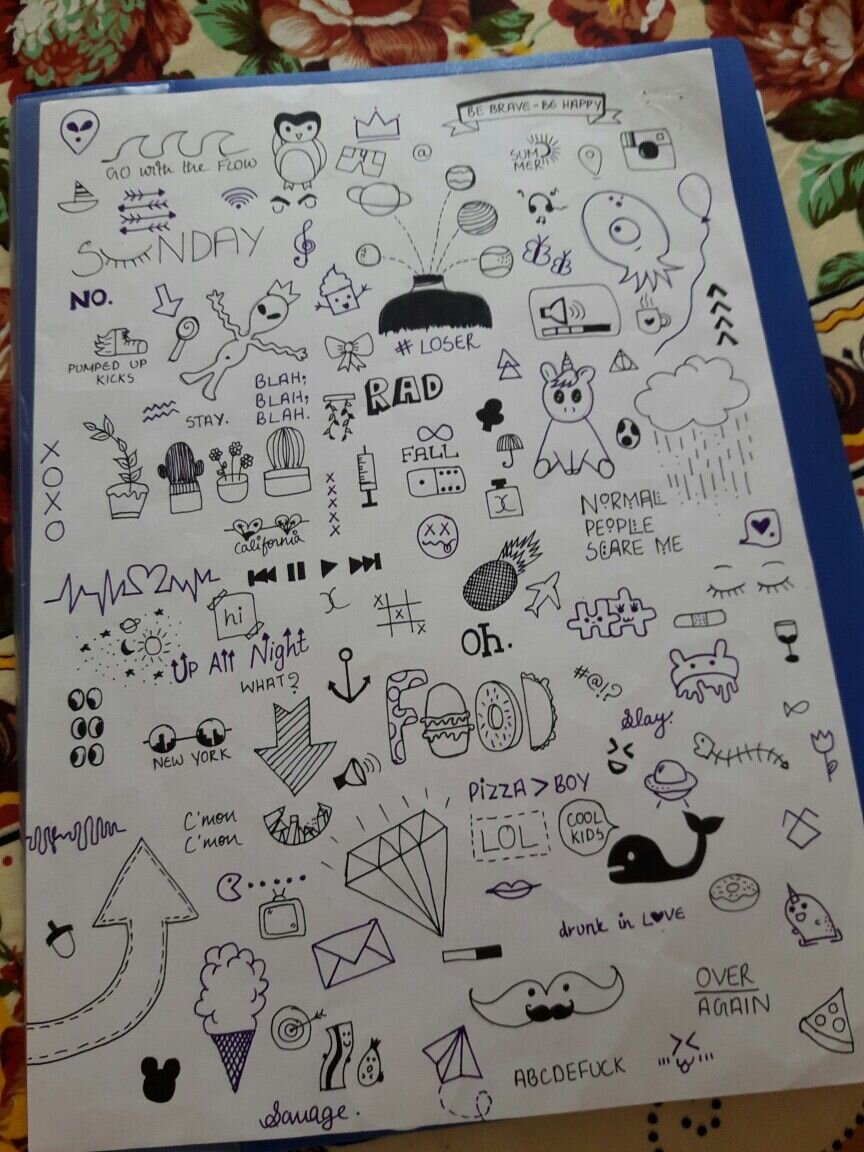 BE BRAVE - BE HAPPY
GO with the FLOW
@
SUM
MER!
SUNDAY
NO.
# LOSER
PUMPED UP
KICKS
BLAH;
BLAH;
BLAH.
RAD
STAY.
X
O
X
O
∞
FALL
x
x
x
x
x
California
NORMAL
PEOPLE
SCARE ME
hi
X
X
X
Oh.
UP All Night
WHAT?
FOOD
#@!?
Slay.
NEW YORK
PIZZA > BOY
C'mon
C'mon
LOL
COOL
KIDS
drunk in LOVE
OVER
AGAIN
ABCDEFUCK
Savage.